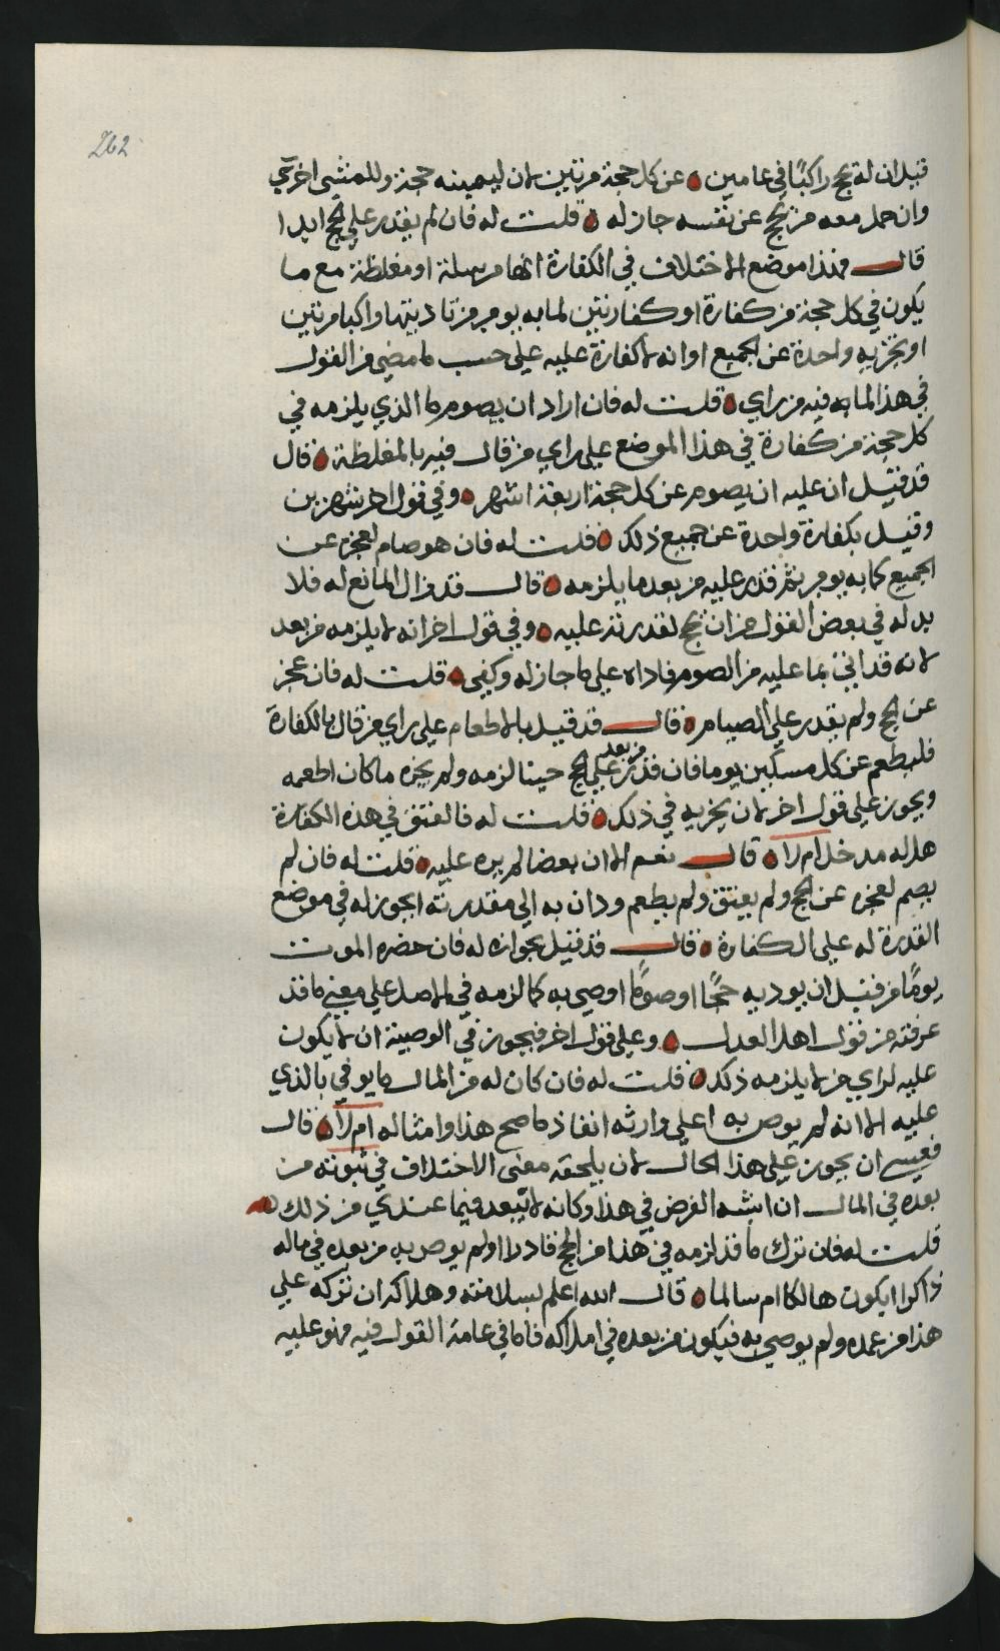 262
قيل ان له يحج راكبًا في عامين عن كل حجة مرتين لان ليمينه حجة وللمشي اخرى
وان حمل معه من يحج عن نفسه جاز له قلت له فان لم يقدر على الحج ابدا
قال فهذا موضع الاختلاف في الكفارة انها مرسلة او مغلظة مع ما
يكون في كل حجة من كفارة او كفارتين لما به يومر من تاديتها راكبا مرتين
او تجزيه واحدة عن الجميع او انه لا كفارة عليه على حسب ما مضى من القول
في هذا لما به فيه من راي قلت له فان اراد ان يصوم ما الذي يلزمه في
كل حجة من كفارة في هذا الموضع على راي من قال فيه بالمغلظة قال
قد قيل ان عليه ان يصوم عن كل حجة اربعة اشهر وفي قول اخر شهرين
وقيل بكفارة واحدة عن جميع ذلك قلت له فان هو صام لعجزه عن
الجميع كما به يومر ثم قدر عليه من بعد ما يلزمه قال قد زال المانع له فلا
بد له في بعض القول من ان يحج لقدرته عليه وفي قول اخر انه لا يلزمه من بعد
لانه قد اتى بما عليه من الصوم فاداه على ما جاز له وكفى قلت له فان عجز
عن الحج ولم يقدر على الصيام قال قد قيل بالاطعام على راي من قال بالكفارة
فليطعم عن كل مسكين يوما فان قدر من بعد على الحج حينا لزمه ولم يجزه ما كان اطعمه
ويجوز على قول اخر لان يجزيه في ذلك قلت له فالعتق في هذه الكفارة
هل له مدخل ام لا قال نعم الا ان بعضا لم يره عليه قلت له فان لم
يصم لعجزه عن الحج ولم يعتق ولم يطعم ودان به الى مقدرته ايجوز له في موضع
القدرة له على الكفارة قال قد قيل بجوازه له فان حضره الموت
يومًا من قبل ان يوديه حجًا او صومًا اوصى به كما لزمه في الاصل على معنى ما قد
عرفته من قول اهل العدل وعلى قول اخر فيجوز في الوصية ان لا يكون
عليه لراي من لا يلزمه ذلك قلت له فان كان له من المال ما يوفي بالذي
عليه الا انه لم يوص به اعلى وارثه انفاذ ما صح هذا وامثاله ام لا قال
فعسى ان يجوز على هذا الحال لان يلحقه معنى الاختلاف في ثبوته من
بعده في المال ان اشبه الفرض في هذا وكانه لا يبعد فيما عندي من ذلك
قلت له فان ترك ما قد لزمه في هذا من الحج قادرا ولم يوص به من بعده في ماله
ذاكرا ايكون هالكا ام سالما قال الله اعلم بسلامته وهلاكه ان تركه على
هذا من عمده ولم يوصي به فيكون من بعده في املاكه فاما في عامة القول فيه فهو عليه